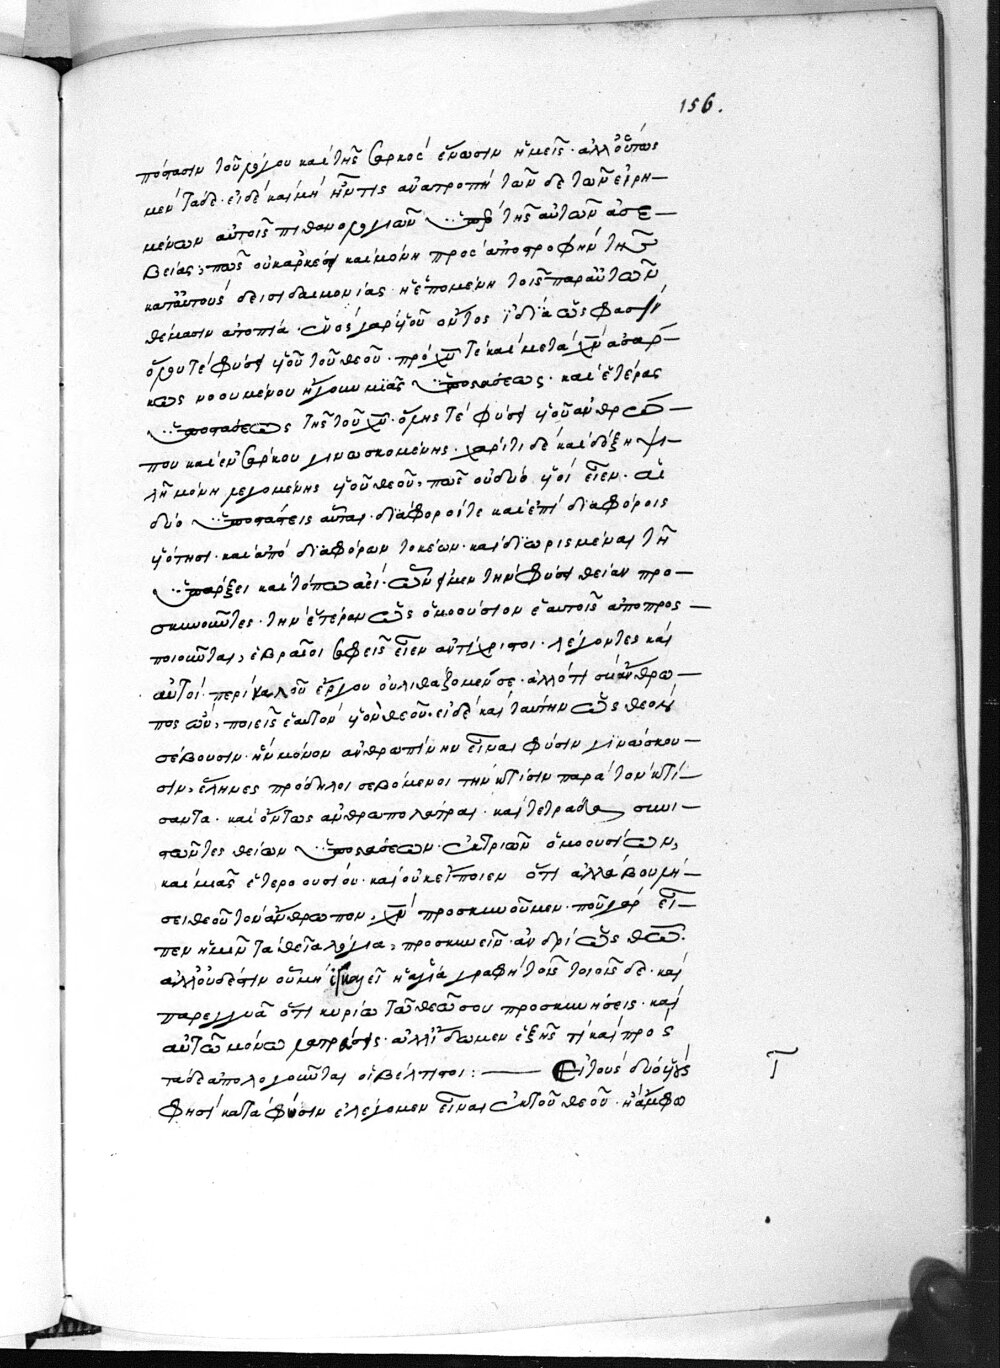 156.
πόστασιν τοῦ λόγου καὶ τῆς σαρκὸς ἕνωσιν ἡμεῖς· ἀλλ' οὕτως
μὲν τάδε· εἰ δὲ καὶ μὴ ἦν τις ἀνατροπὴ τῶν δε τῶν εἰρη–
μένων αὐτοῖς πιθανολογιῶν τῆς αὐτῶν ἀσε–
βείας, πῶς οὐκ ἀρκέσει καὶ μόνη πρὸς ἀποστροφὴν τῆς
κατ' αὐτοὺς δεισιδαιμονίας ἡ ἑπομένη τοῖς παρ' αὐτῶν
θέμασιν ἀτοπία· ἑνὸς γὰρ υἱοῦ ὄντος ἰδία ὥς φασιν
ὅλου τὲ φύσει υἱοῦ τοῦ θεοῦ· πρὸ χυ τὲ καὶ μετὰ χν ἀσάρ–
κως νοουμένου ἤγουν μιᾶς ὑποστάσεως· καὶ ἑτέρας
ὑποστάσεως τῆς τοῦ χυ· ὅλης τὲ φύσει υἱοῦ ἀνθρώ–
που καὶ ἐνσάρκου γινωσκομένης· χάριτι δὲ καὶ δόξῃ ψι–
λῇ μόνῃ λεγομένης υἱοῦ θεοῦ, πῶς οὐ δύο υἱοὶ εἶεν· αἱ
δύο ὑποστάσεις αὗται· διάφοροί τε καὶ ἐπὶ διαφόροις
υἱότησι· καὶ ἀπὸ διαφόρων τοκέων· καὶ διωρισμέναι τῇ
ὑπάρξει καὶ τόπω ἀεί· ὧν εἰ μὲν τὴν φύσει θείαν προ–
σκυνοῦντες· τὴν ἑτέραν ὡς ὁμοούσιον ἑαυτοῖς ἀποπροσ–
ποιοῦνται, ἑβραῖοι σαφεῖς εἶεν ἀντίχριστοι· λέγοντες καὶ
αὐτοί· περὶ καλοῦ ἔργου οὐ λιθάζομέν σε· ἀλλ' ὅτι σὺ ἄνθρω–
πος ὢν, ποιεῖς ἑαυτὸν υἱὸν θεοῦ· εἰ δὲ καὶ ταύτην ὡς θεὸν
σέβουσιν· ἣν μόνον ἀνθρωπίνην εἶναι φύσιν γινώσκου–
σιν, ἕλληνες πρόδηλοι σεβόμενοι τὴν κτίσιν παρὰ τὸν κτί–
σαντα· καὶ ὄντως ἀνθρωπολάτραι· καὶ τετράδα συνι–
στῶντες θείων ὑποστάσεων· ἐκ τριῶν ὁμοουσίων,
καὶ μιᾶς ἑτεροουσίου· καὶ οὐκ εἴποιεν ὅτι ἀλλὰ βουλή–
σει θεοῦ τὸν ἄνθρωπον, χν προσκυνοῦμεν· ποῦ γὰρ εἶ–
πεν ἡμῖν τὰ θεῖα λόγια, προσκυνεῖν ἀνδρὶ ὡς θεῶ·
ἀλλ' οὐδ' ἐστὶν οὗ μὴ ἐγκαλεῖ ἡ ἁγία γραφὴ τοῖς τοιοῖς δε· καὶ
παρεγγυᾶ ὅτι κυρίω τῶ θεῶ σου προσκυνήσεις· καὶ
αὐτῶ μόνω λατρεύσεις· ἀλλ' ἴδωμεν ἑξῆς τί καὶ πρὸς
τάδε ἀπολογοῦνται οἱ βέλτιστοι: —— Εἰ τοὺς δύο υἱοὺς
φησὶ κατὰ φύσιν ἐλέγομεν εἶναι ἐκ τοῦ θεοῦ· ἢ ἄμφω